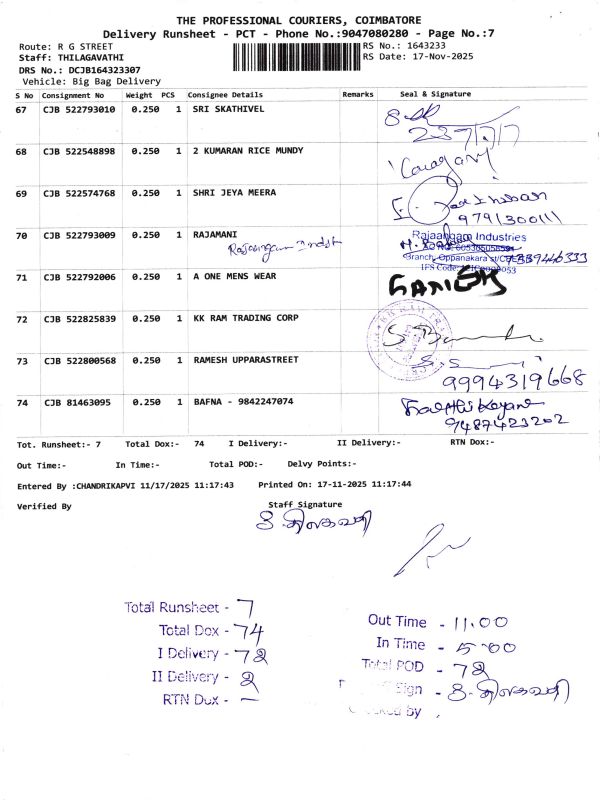 THE PROFESSIONAL COURIERS, COIMBATORE
Delivery Runsheet - PCT - Phone No.:9047080280 - Page No.:7
Route: R G STREET
RS No.: 1643233
Staff: THILAGAVATHI
RS Date: 17-Nov-2025
DRS No.: DCJB164323307
Vehicle: Big Bag Delivery
S No Consignment No Weight PCS Consignee Details Remarks Seal & Signature
67 CJB 522793010 0.250 1 SRI SKATHIVEL
68 CJB 522548898 0.250 1 2 KUMARAN RICE MUNDY
69 CJB 522574768 0.250 1 SHRI JEYA MEERA
9791300111
70 CJB 522793009 0.250 1 RAJAMANI
Rajaangam Industries
71 CJB 522792006 0.250 1 A ONE MENS WEAR
GANESH
72 CJB 522825839 0.250 1 KK RAM TRADING CORP
73 CJB 522800568 0.250 1 RAMESH UPPARASTREET
9994319668
74 CJB 81463095 0.250 1 BAFNA - 9842247074
9487423202
Tot. Runsheet:- 7 Total Dox:- 74 I Delivery:- II Delivery:- RTN Dox:-
Out Time:- In Time:- Total POD:- Delvy Points:-
Entered By :CHANDRIKAPVI 11/17/2025 11:17:43 Printed On: 17-11-2025 11:17:44
Verified By Staff Signature
Total Runsheet - 7
Total Dox - 74
I Delivery - 72
II Delivery - 2
RTN Dox - —
Out Time - 11.00
In Time - 5.00
Total POD - 72
Sign -
by